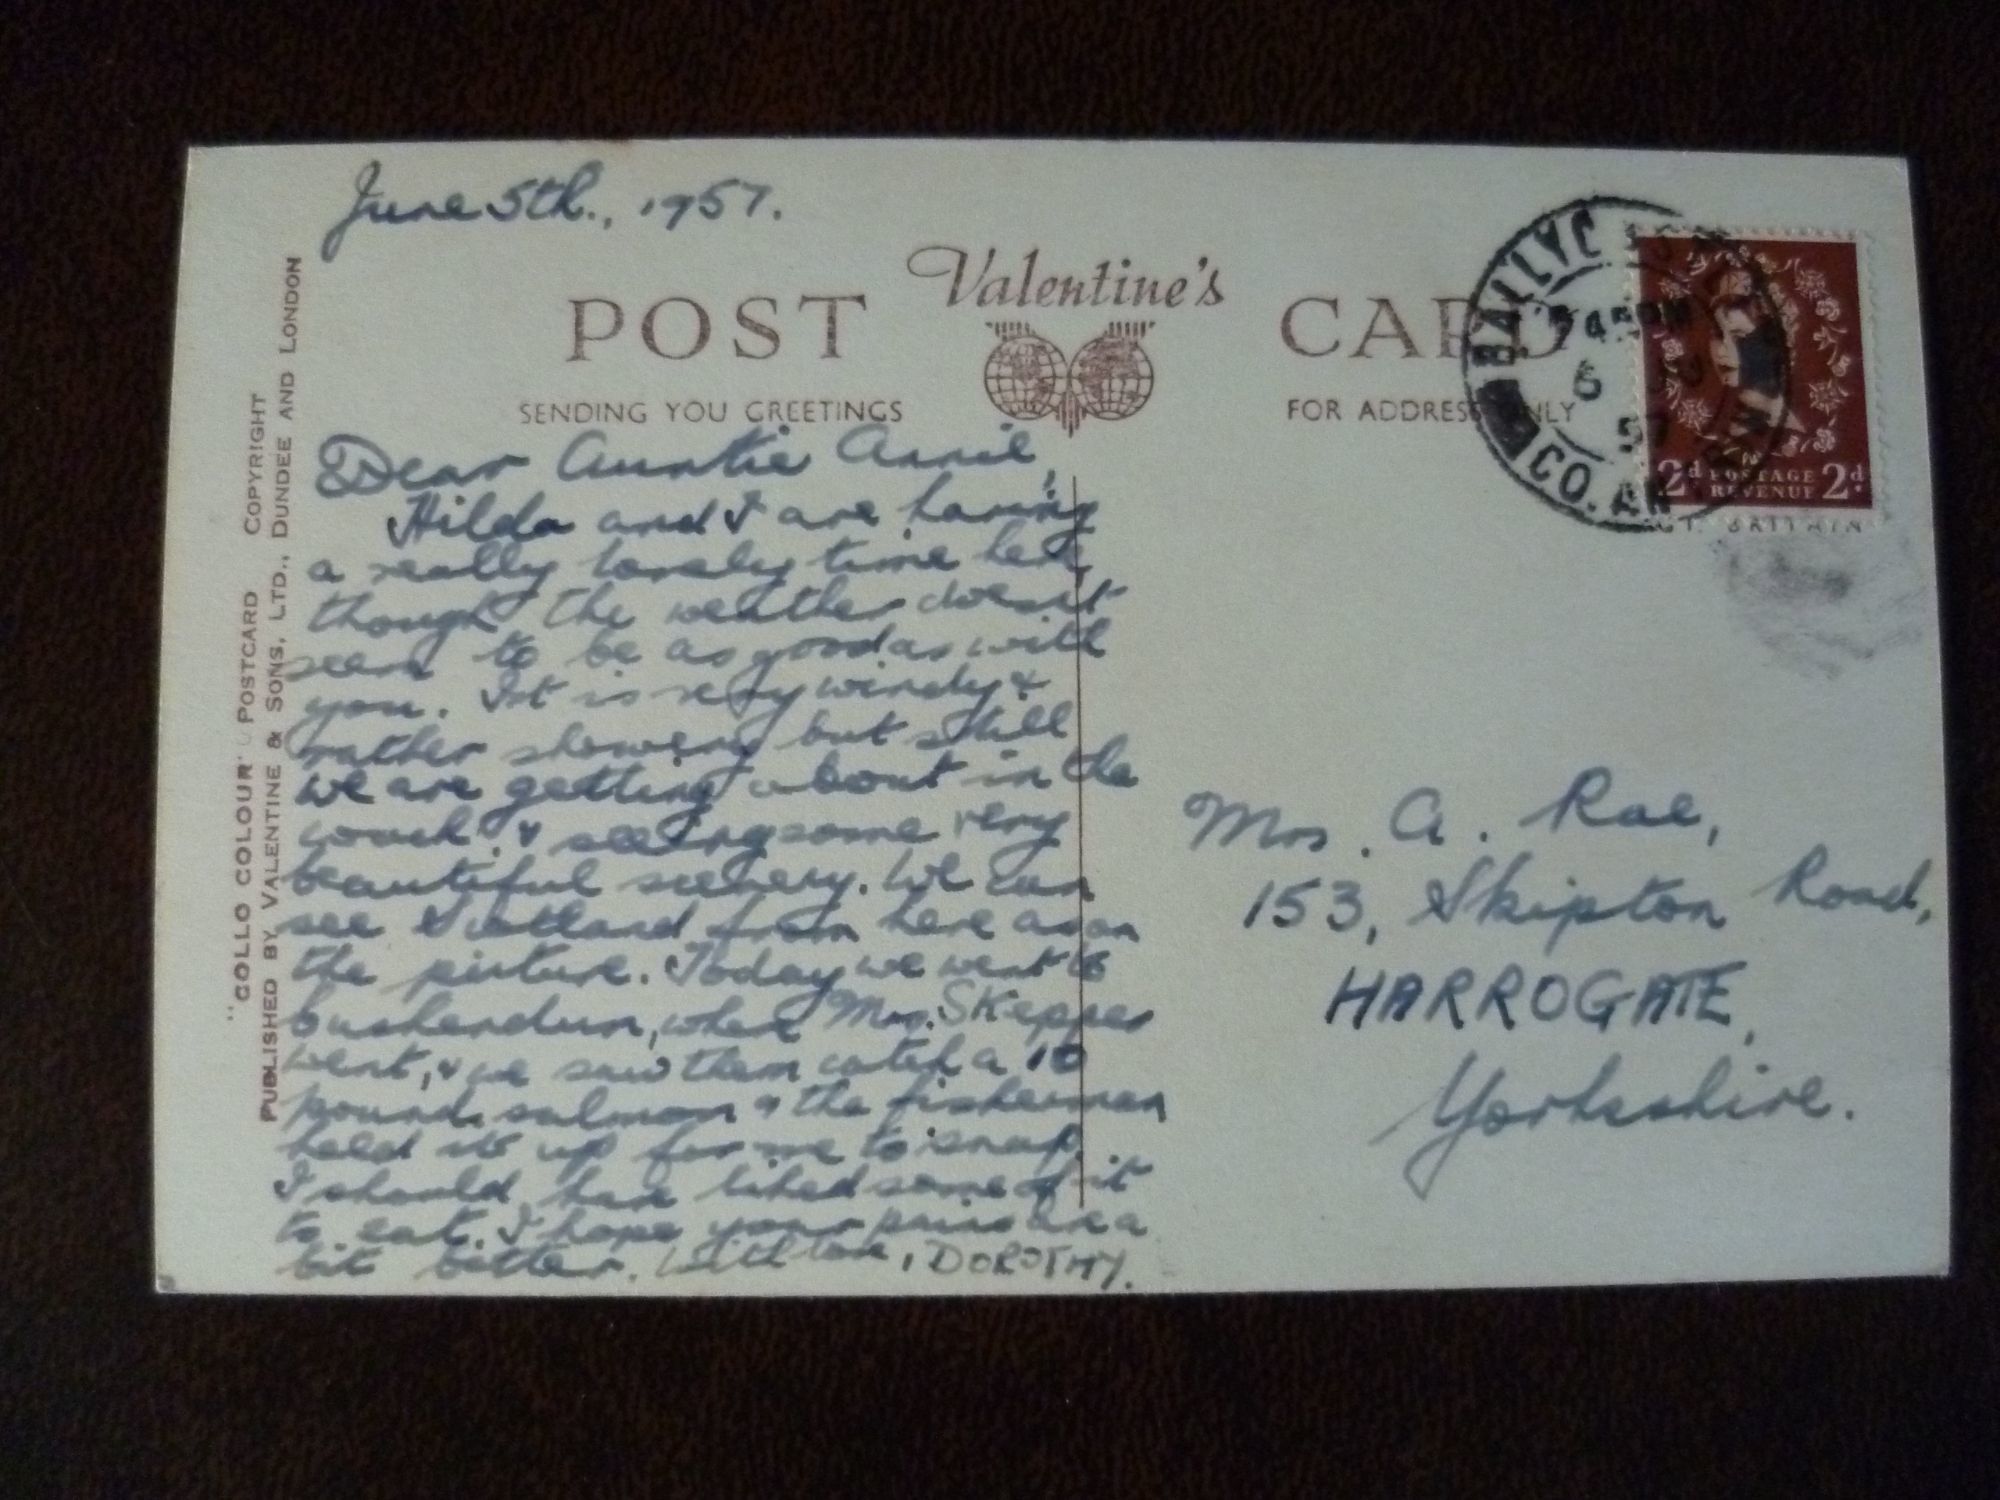 June 5th., 1957.
Valentine's
POST CARD
SENDING YOU GREETINGS
FOR ADDRESS ONLY
"COLLO COLOUR" POSTCARD COPYRIGHT
PUBLISHED BY VALENTINE & SONS, LTD., DUNDEE AND LONDON
Dear Auntie Annie,
Hilda and I are having
a really lovely time here,
though the weather doesn't
seem to be as good as with
you. It is very windy &
rather showery but still
we are getting about in the
coach & seeing some very
beautiful scenery. We can
see Scotland from here as on
the picture. Today we went to
Cushendun, where Mrs. Skepper
went, & we saw them catch a 10
pound salmon & the fisherman
held it up for me to snap.
I should have liked some of it
to eat. I hope your pains are a
bit better. With love, DOROTHY.
BALLYC
45 PM
57
CO. AN
2d POSTAGE 2d
REVENUE
GT. BRITAIN
Mrs. A. Rae,
153, Skipton Road,
HARROGATE,
Yorkshire.